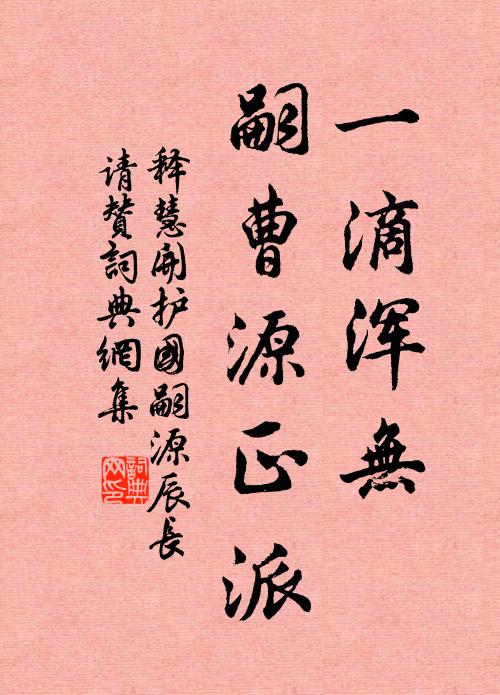 一滴浑無
嗣曹源正派
释慧開护國嗣源辰長
请赞詞典網集
詞典
网印